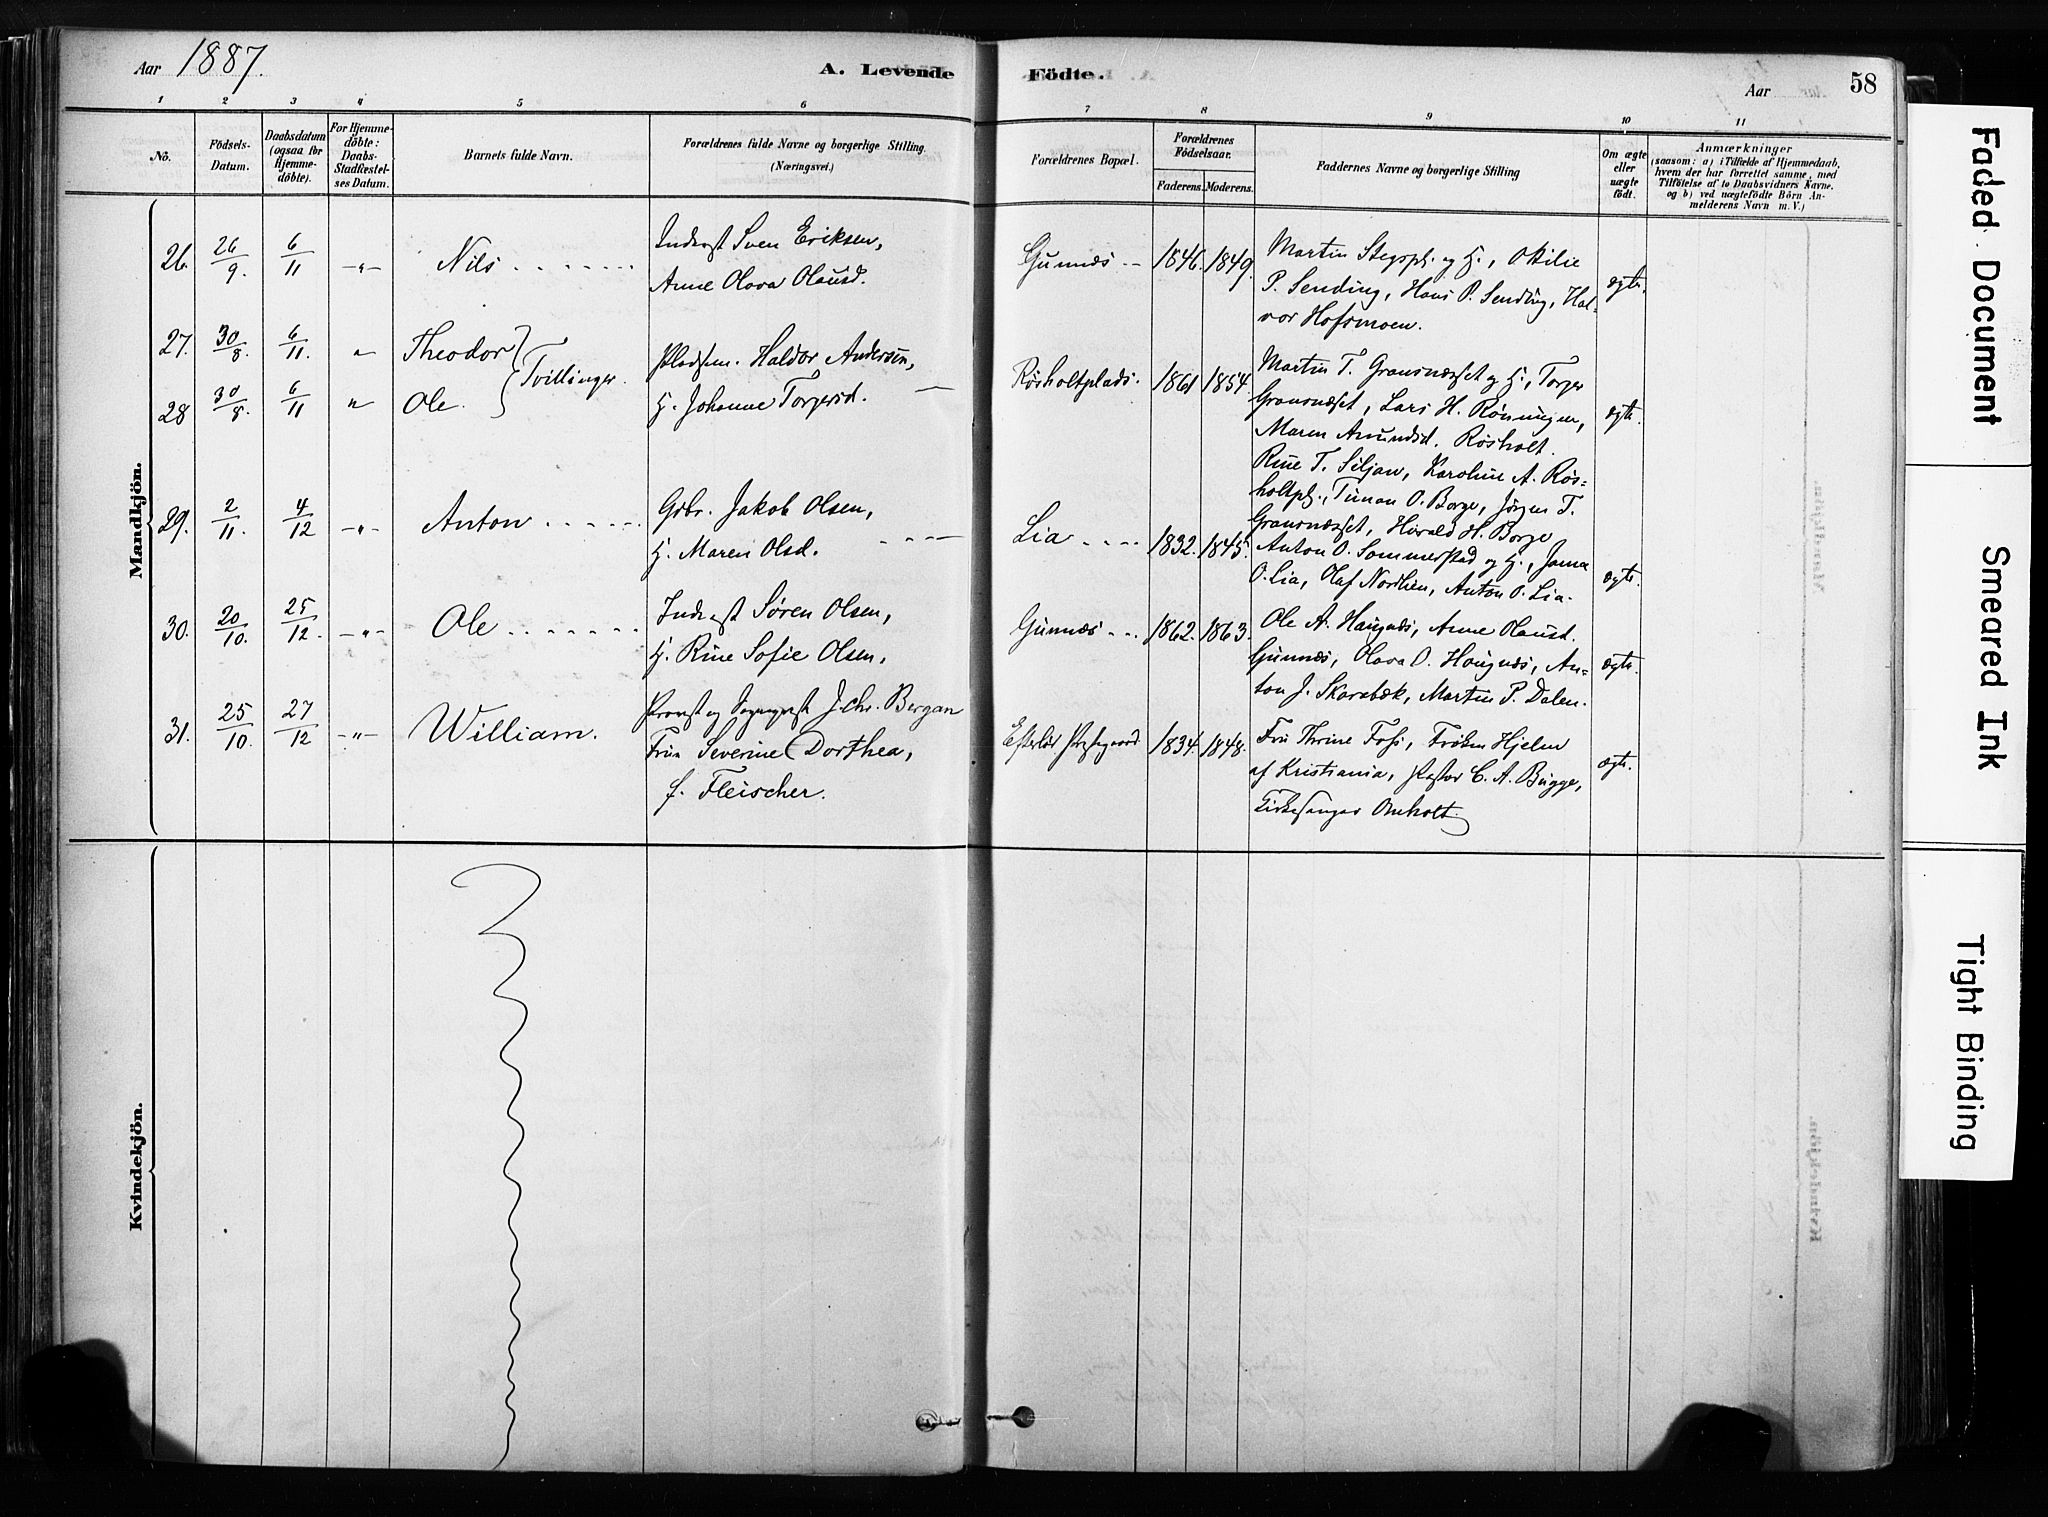 Aar 1887.
A. Levende Födte.
Aar
58
1 2 3 4 5 6 7 8 9 10 11
No.
Födsels-
Datum.
Daabsdatum
(ogsaa for
Hjemme-
döbte).
For Hjemme-
döbte:
Daabs-
Stadfæstel-
ses Datum.
Barnets fulde Navn.
Forældrenes fulde Navne og borgerlige Stilling.
(Næringsvei.)
Forældrenes Bopæl.
Forældrenes
Födselsaar.
Faderens. Moderens.
Faddernes Navne og borgerlige Stilling
Om ægte
eller
uægte
födt.
Anmærkninger
(saasom: a) i Tilfælde af Hjemmedaab,
hvem der har forrettet samme, med
Tilföielse af to Daabsvidners Navne.
og b) ved uægtefödte Börn An-
melderens Navn m. V.)
Mandkjön.
26. 26/9 6/11 -"- Nils
Inderst Sven Eriksen,
Anne Olava Olausd.
Gunnæs 1846. 1849.
Martin Stegspl. og H., Otilie
P. Sending, Hans P. Sending, Hal-
vor Hofsmoen.
ægte.
27. 30/8. 6/11. " Theodor
28 30/8. 6/11 " Ole.
Tvillinger.
Pladsm. Haldor Andersen,
H. Johanne Torgersd.
Røsholtplads. 1861 1854.
Martin T. Gransnæsset og H., Torger
Gransnæsset, Lars H. Rønningen,
Maren Amundsd. Røsholt.
Rine T. Siljan, Karoline A. Røs-
holtpl., Timan O. Borge, Jørgen T.
Gransnæsset, Harald H. Borge
ægte.
29. 2/11. 4/12 -"- Anton
Gbr. Jakob Olsen,
H. Maren Olsd.
Lia 1832. 1845.
Anton O. Sommerstad og H., Jama
O. Lia, Olaf Nordlien, Anton O. Lia.
ægte.
30. 20/10. 25/12. -"- Ole
Inderst Søren Olsen,
H. Rine Sofie Olsen,
Gunnæs 1862. 1863.
Ole A. Haugnæs, Anne Olausd.
Gunnæs, Olava O. Haugnæs, An-
ton J. Skarabæk, Martin P. Dalen.
ægte.
31. 25/10. 27/12 -"- William.
Provst og Sogneprest J. Chr. Bergan
Frue Severine Dorthea,
f. Fleischer.
Efteløt Præstegaard 1834. 1848.
Fru Thrine Foss, Frøken Hjelm
af Kristiania, Pastor C. A. Bugge,
Kirkesanger Omholt.
ægte.
Kvindekjön.
Faded Document
Smeared Ink
Tight Binding